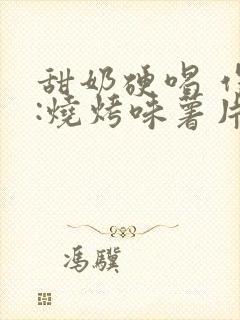 甜奶硬唱
:燒烤味薯片
馮驥